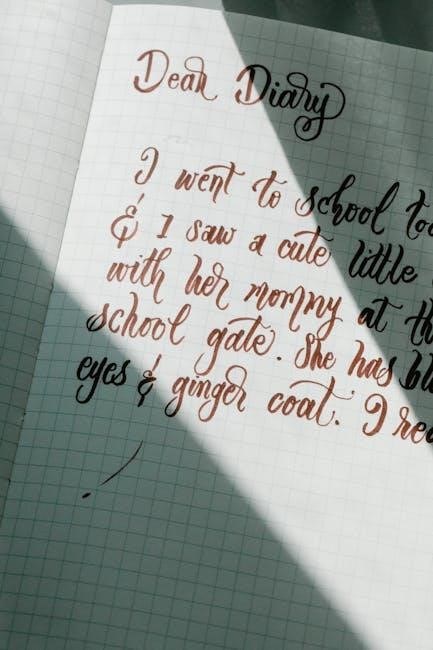 Dear Diary
I went to school to
& I saw a cute little
with her mommy at th
school gate. She has bl
eyes & ginger coat. I rea